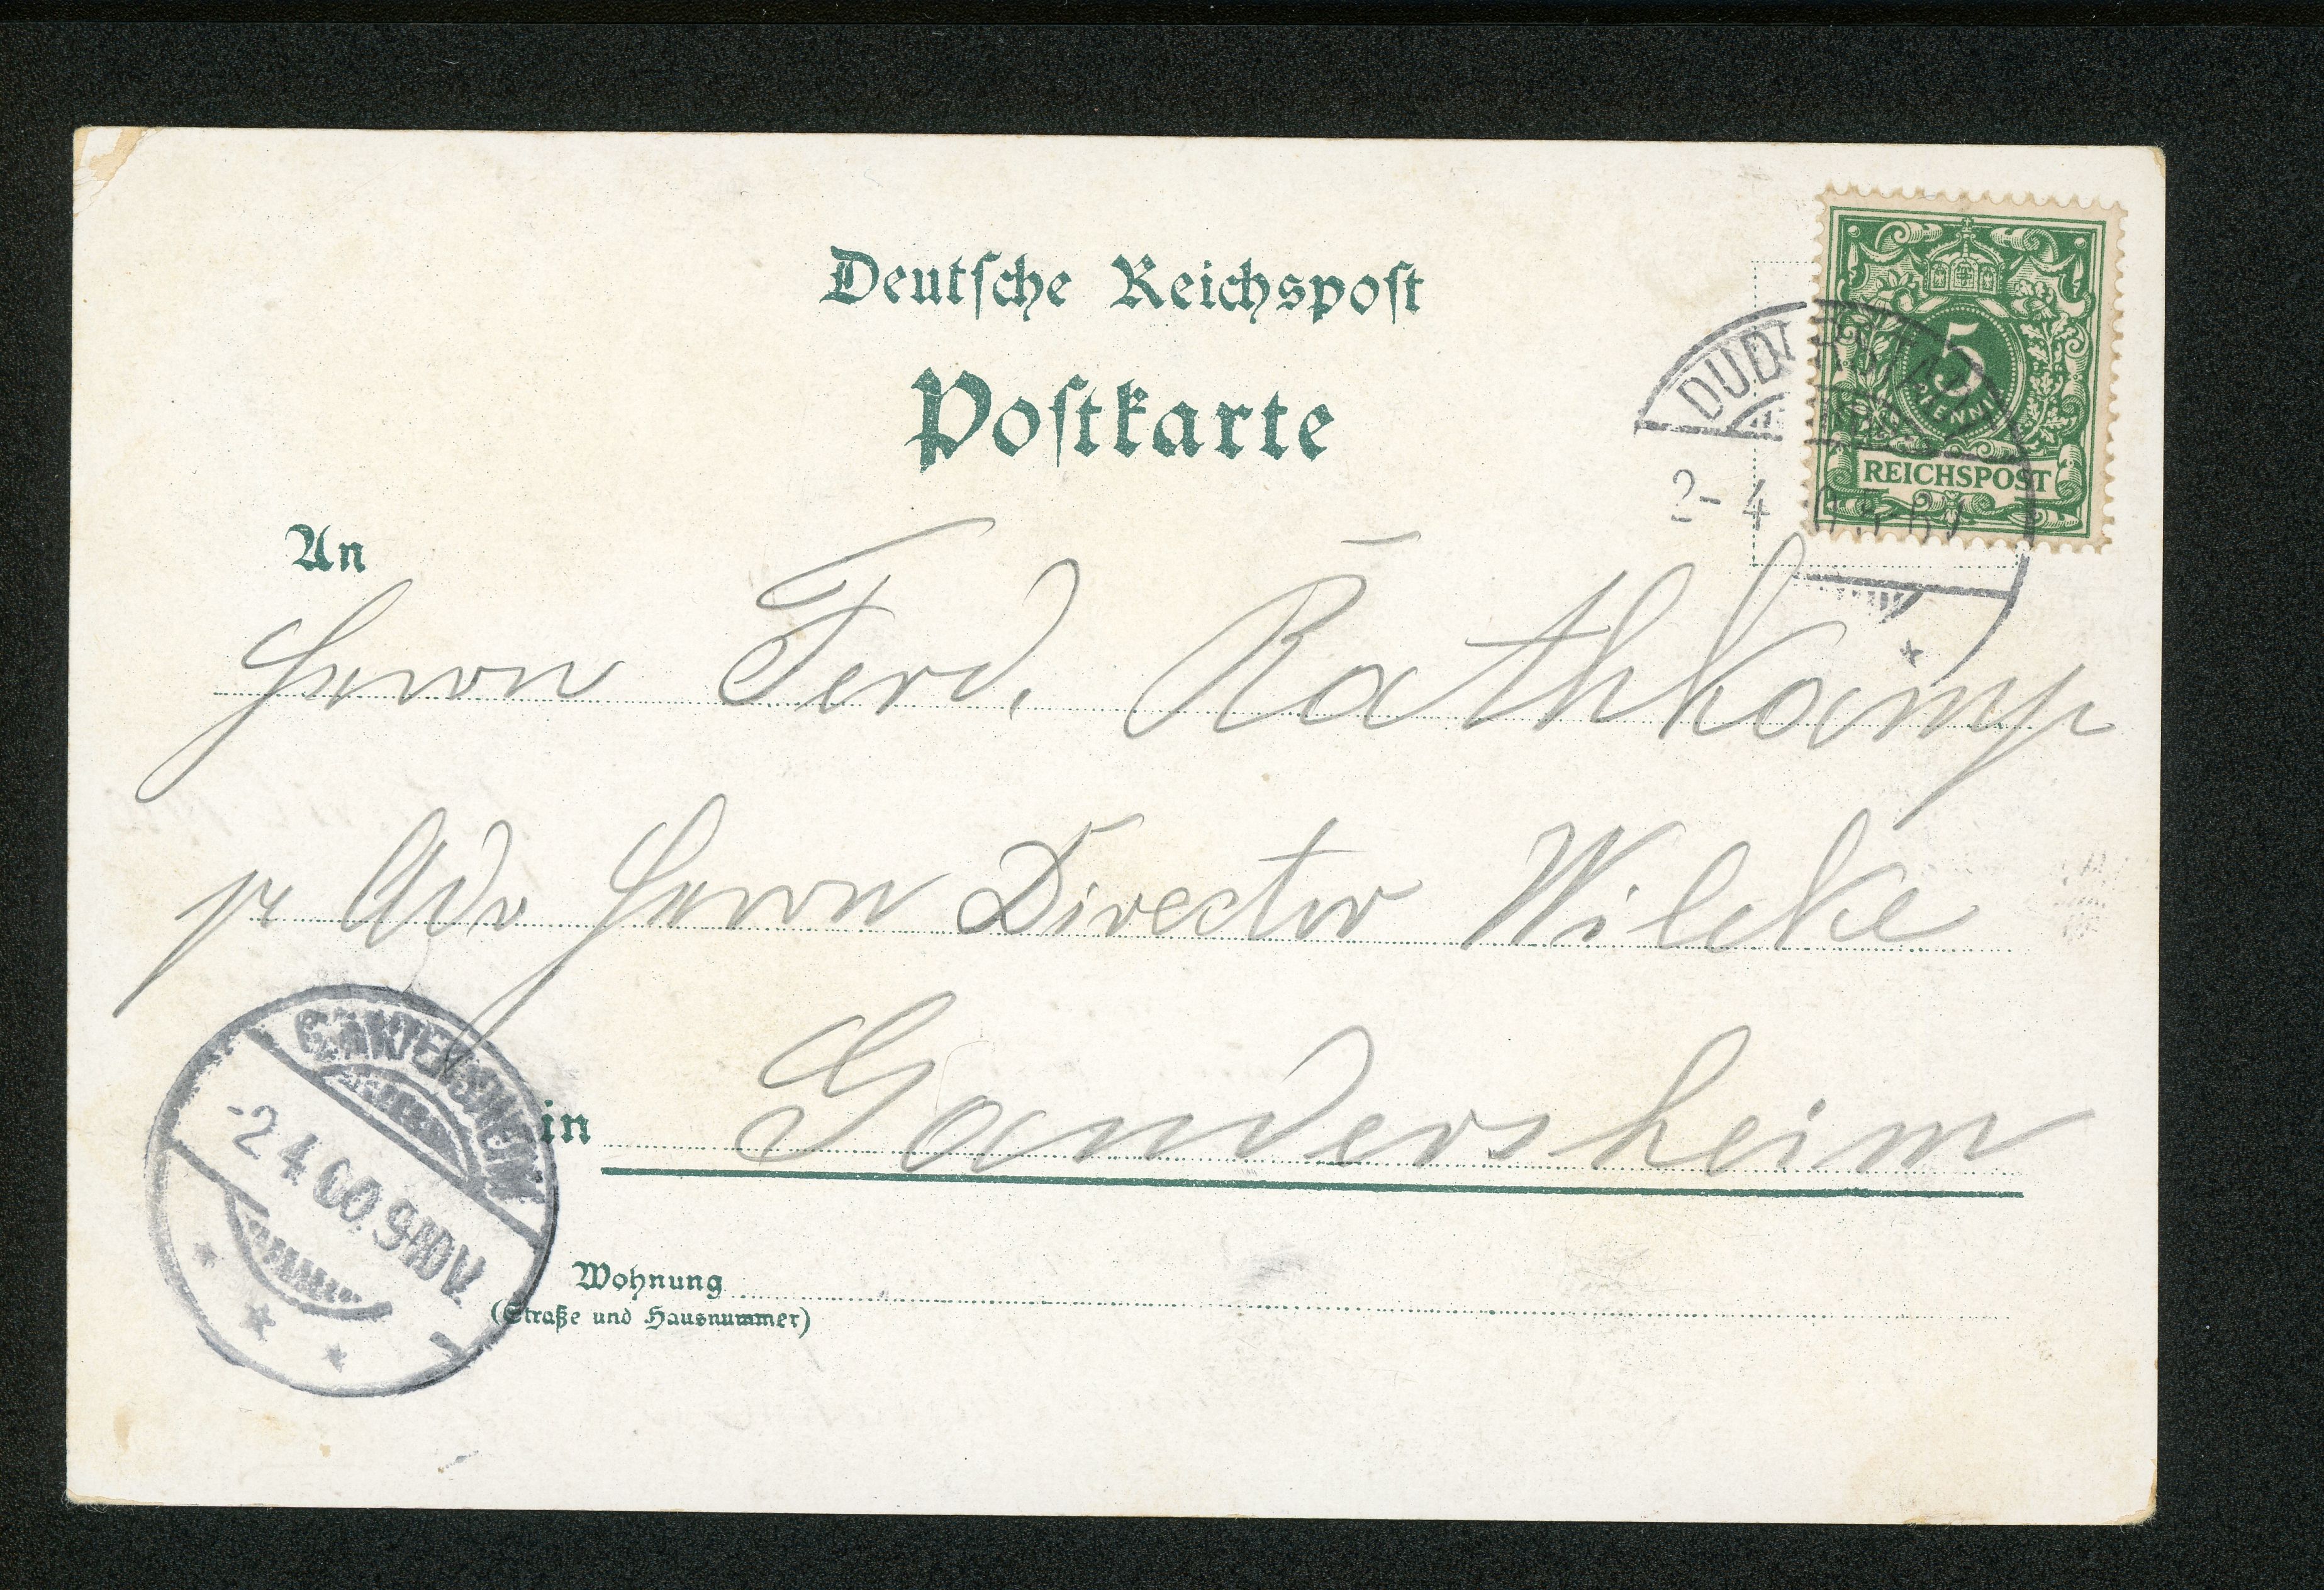 Deutsche Reichspost
Postkarte
5
PFENNIG
REICHSPOST
2-4
An
Herrn Ferd. Rathkamp
pr Adr Herrn Director Wilcke
in Gandersheim
GANDERSHEIM
-2 4 00. 9-10 V.
Wohnung
(Straße und Hausnummer)